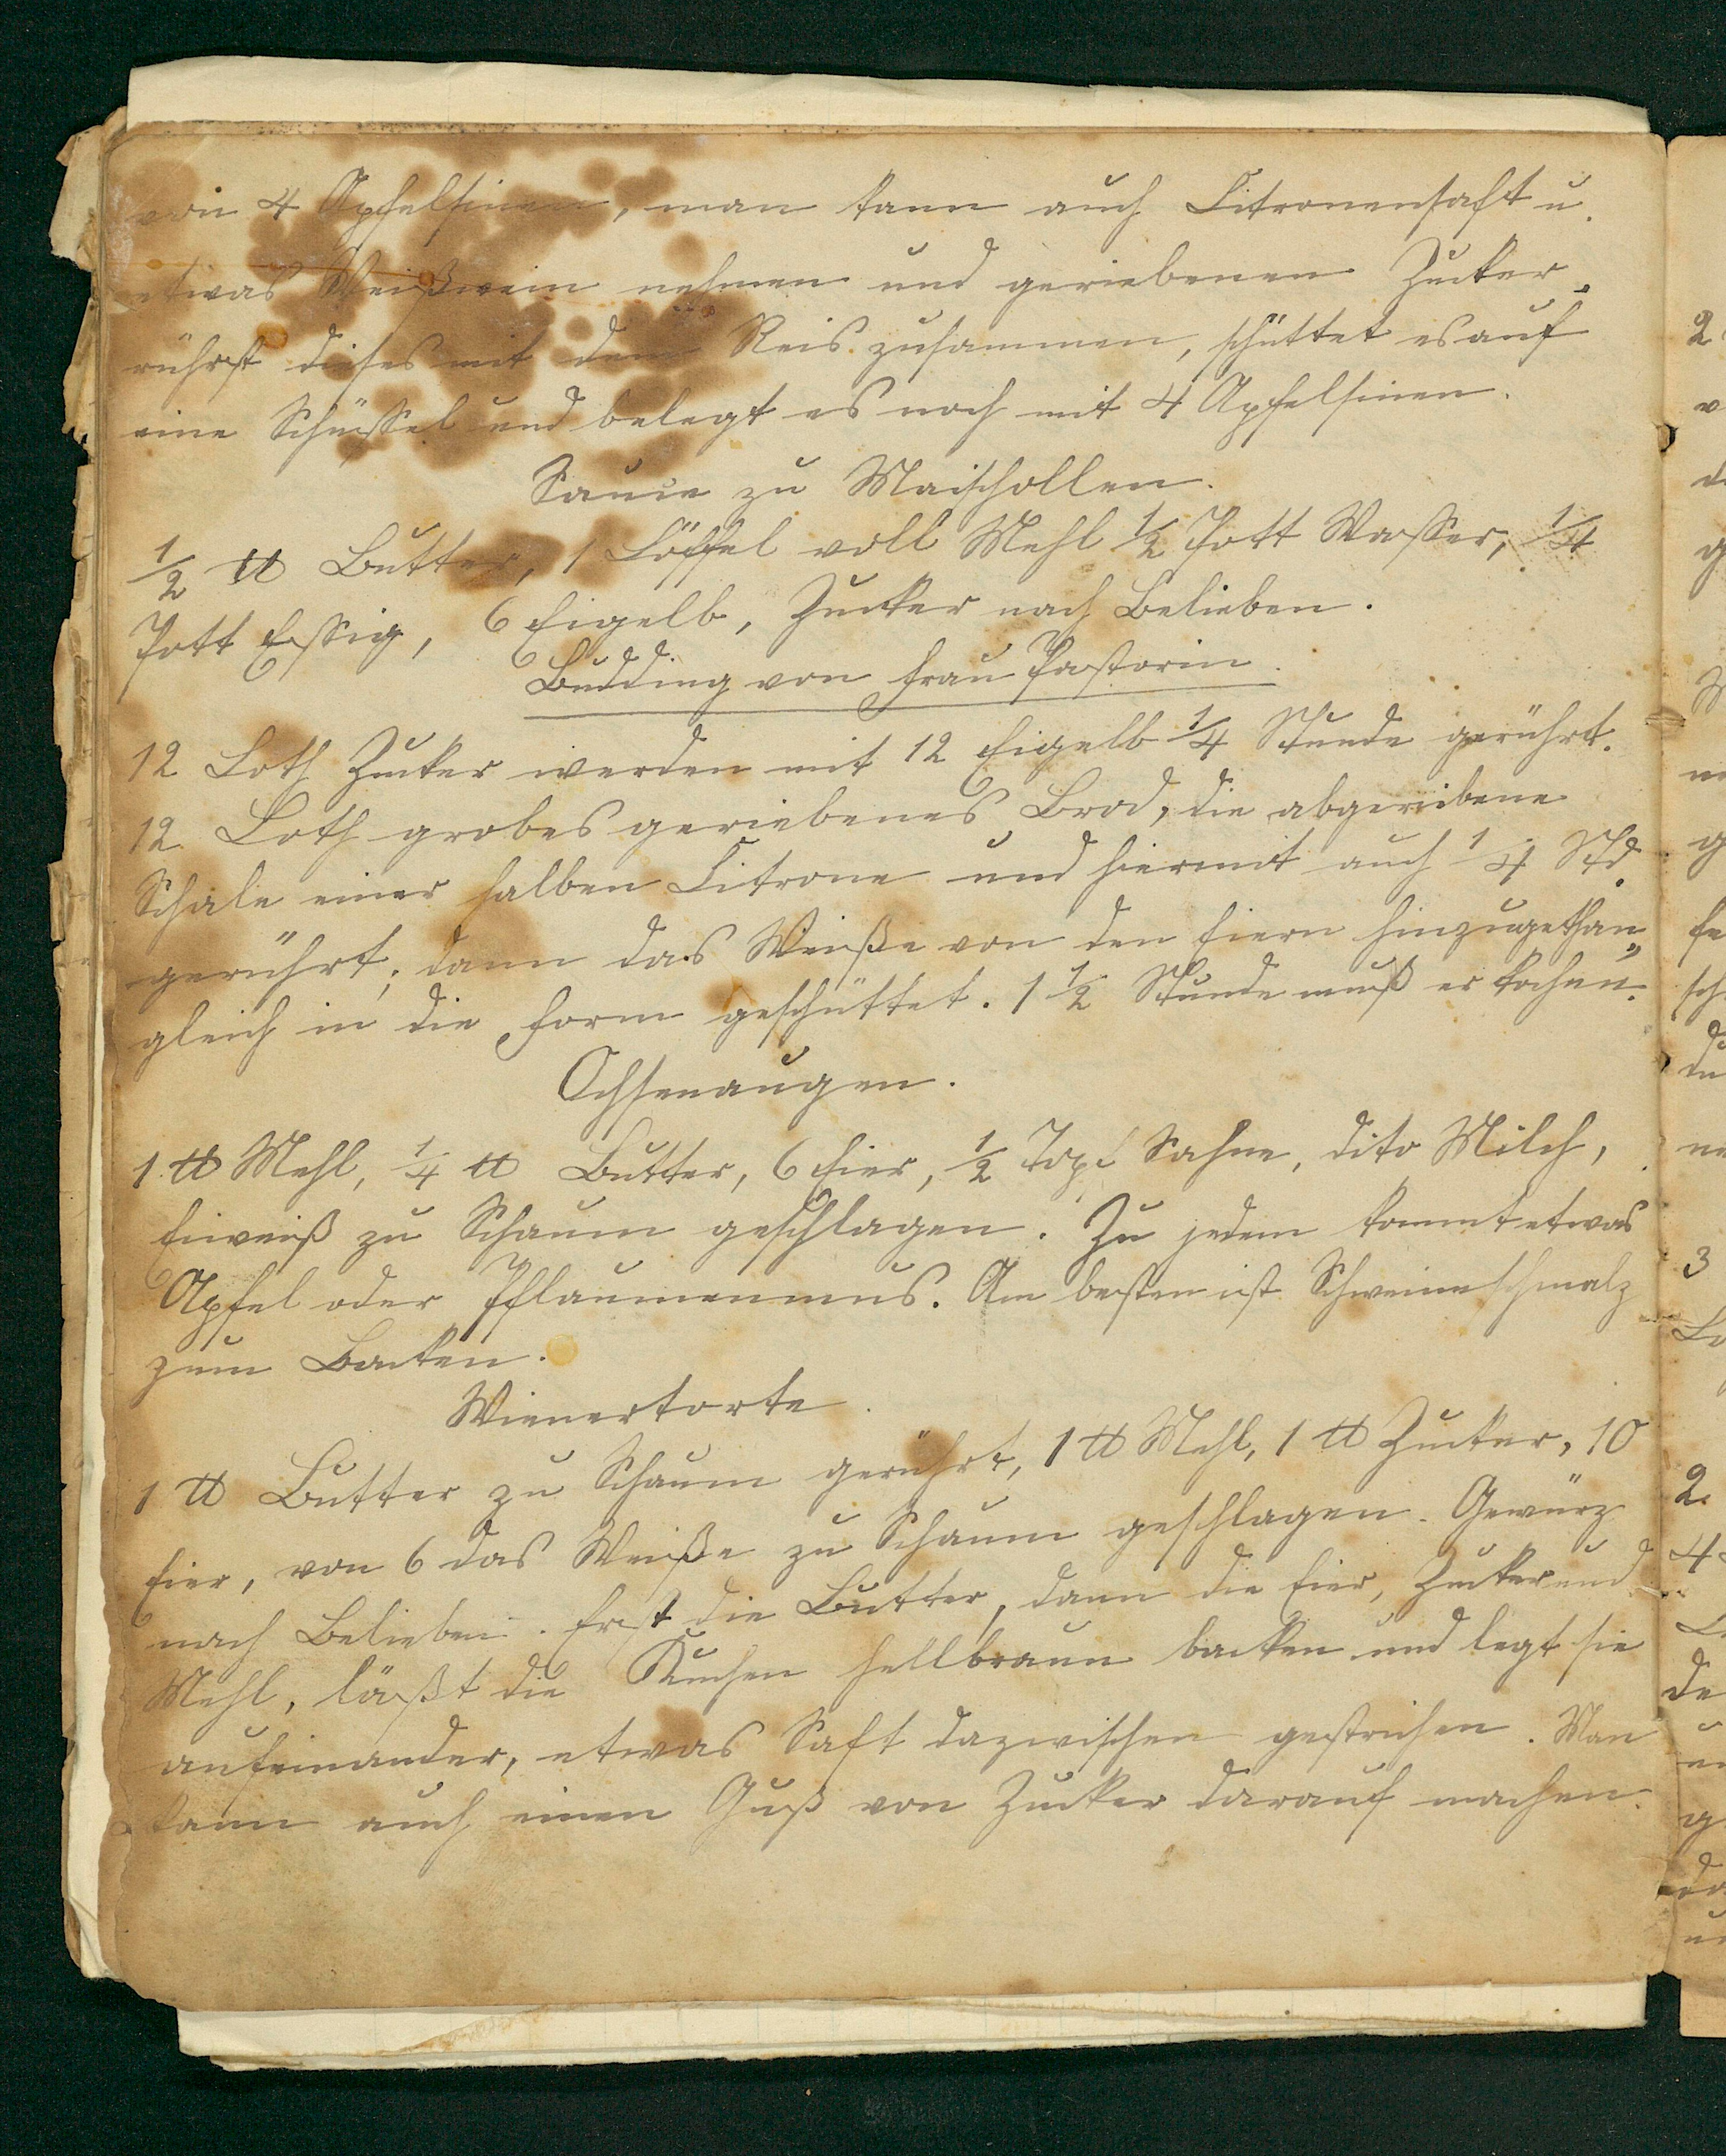 von 4 Apfelsinen, man kann auch Citronensaft u.
etwas Weißwein nehmen und geriebenen Zucker,
rührst dieses mit dem Reis zusammen, schüttet es auf
eine Schüssel und belegt es noch mit 4 Apfelsinen.
Sauce zu Maischollen.
1/2 ℔ Butter, 1 Löffel voll Mehl 1/2 Pott Wasser, 1/4
Pott Essig, 6 Eigelb, Zucker nach Belieben.
Budding von Frau Pastorin.
12 Loth Zucker werden mit 12 Eigelb 1/4 Stunde gerührt.
12 Loth grobes geriebenes Brod, die abgeriebene
Schale einer halben Citrone und hiermit auch 1/4 Std.
gerührt; dann das Weiße von den Eiern hinzugethan,
gleich in die Form geschüttet. 1 1/2 Stunde muß er kochen.
Ochsenaugen.
1 ℔ Mehl, 1/4 ℔ Butter, 6 Eier, 1/2 Topf Sahne, dito Milch,
Eiweiß zu Schaum geschlagen. Zu jedem kommt etwas
Apfel oder Pflaumenmus. Am besten ist Schweineschmalz
zum Backen.
Wienertorte.
1 ℔ Butter zu Schaum gerührt, 1 ℔ Mehl, 1 ℔ Zucker, 10
Eier, von 6 das Weiße zu Schaum geschlagen. Gewürz
nach Belieben. Erst die Butter, dann die Eier, Zucker und
Mehl, läßt die Kuchen hellbraun backen und legt sie
aufeinander, etwas Saft dazwischen gestrichen. Man
kann auch einen Guß von Zucker darauf machen.